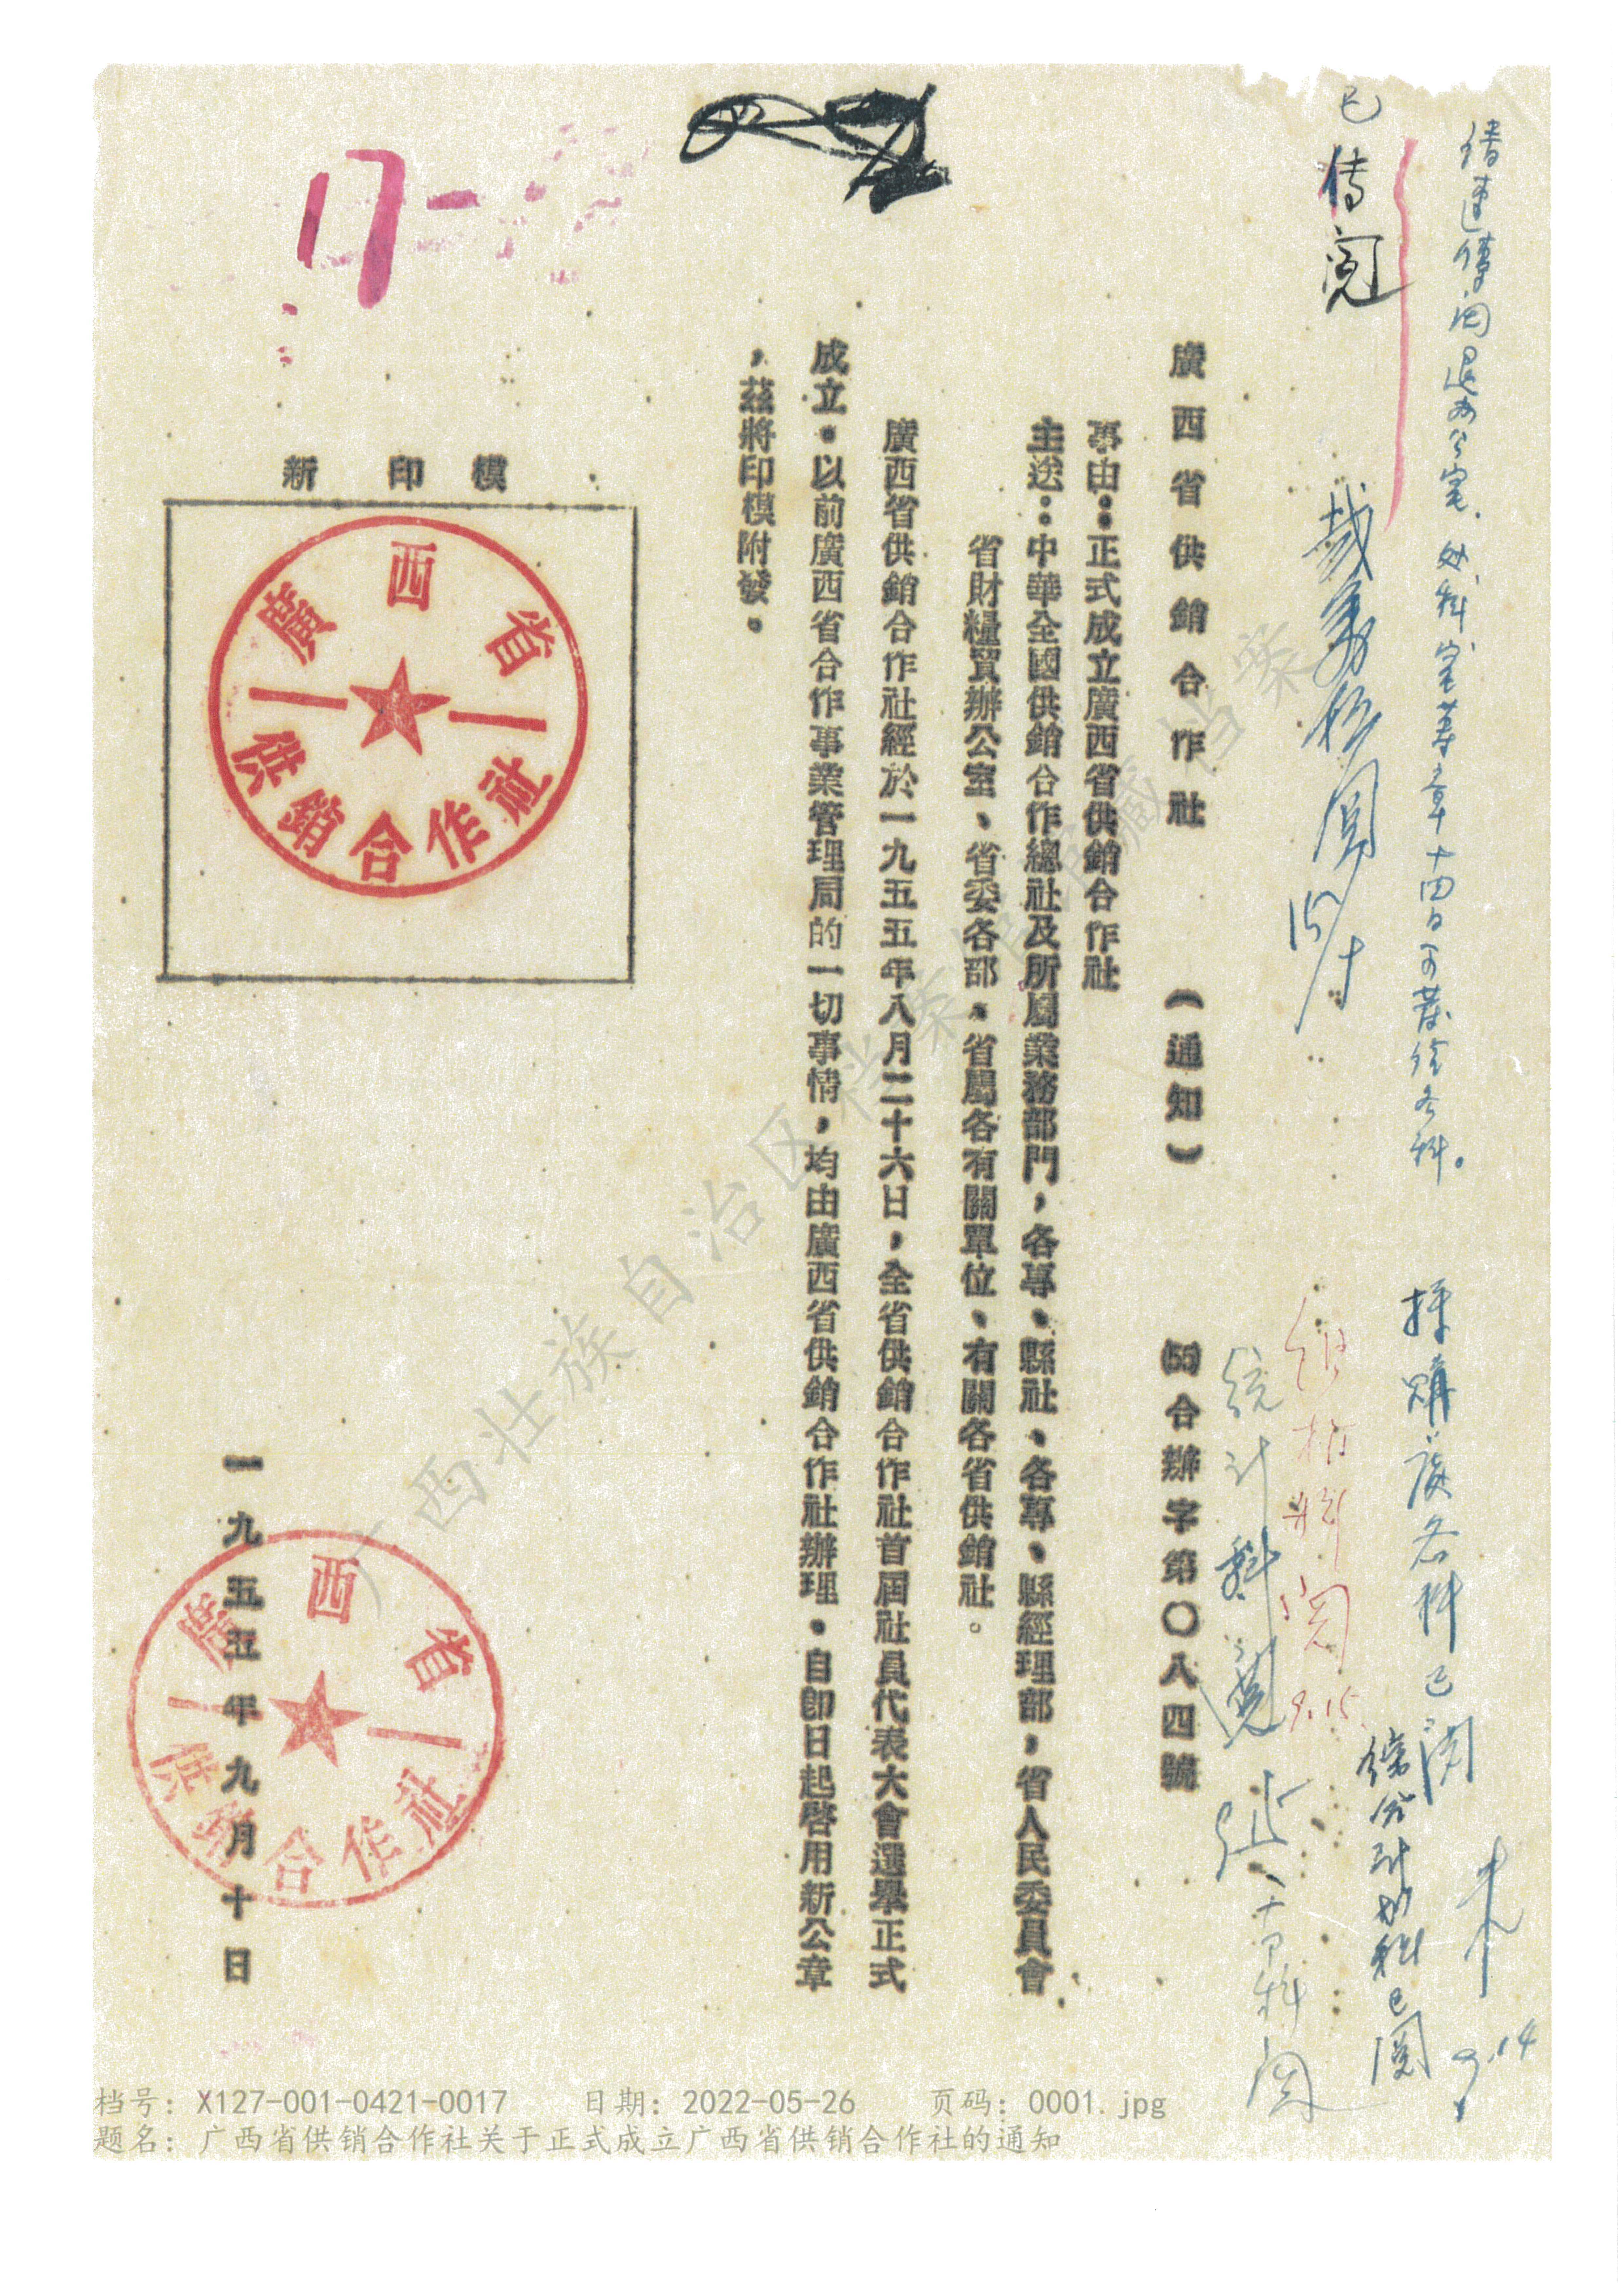 已传阅
採購處各科已閱
9.14
統計科
9.15
廣西省供銷合作社 （通知） (55)合辦字第〇八四號
事由：正式成立廣西省供銷合作社
主送：中華全國供銷合作總社及所屬業務部門，各專、縣社、各專、縣經理部，省人民委員會
省財糧貿辦公室、省委各部、省屬各有關單位、有關各省供銷社。
廣西省供銷合作社經於一九五五年八月二十六日，全省供銷合作社首屆社員代表大會選舉正式
成立。以前廣西省合作事業管理局的一切事情，均由廣西省供銷合作社辦理。自即日起啓用新公章
，茲將印模附發。
17
新印模
廣西省
供銷合作社
一九五五年九月十日
廣西省
供銷合作社
广西壮族自治区档案馆馆藏档案
档号：X127-001-0421-0017 日期：2022-05-26 页码：0001.jpg
题名：广西省供销合作社关于正式成立广西省供销合作社的通知